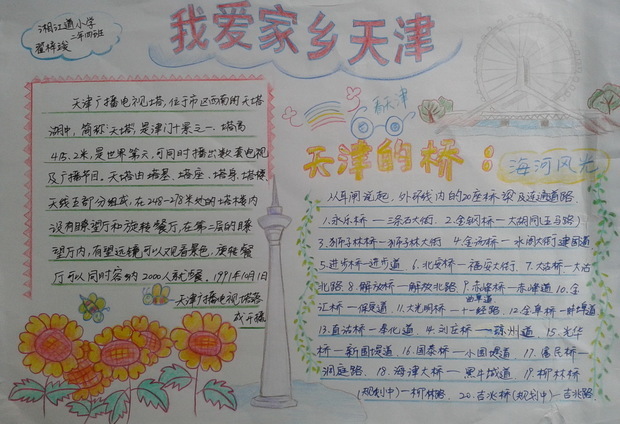 湘江道小学
二年四班
我爱家乡天津
天津广播电视塔,位于市区西南的天塔
湖中,简称天塔,是津门十景之一.塔高
415.2米,是世界第六,可同时播出数套电视
及广播节目。天塔由塔基、塔座、塔身、塔楼
天线五部分组成,在248-278米处的塔楼内
设有瞭望厅和旋转餐厅,在第二层的瞭
望厅内,有望远镜可以观看景色,旋转餐
厅可以同时容纳2000人就餐。1991年10月1日
天津广播电视塔落
成开播
看天津
天津的桥:
海河风光
外环线内的20座桥梁及连通道路.
1.永乐桥—三条石大街. 2.金钢桥—大胡同(五马路)
3.狮子林桥—狮子林大街 4.金汤桥—水阁大街 建国道
5.进步桥—进步道 6.北安桥—福安大街. 7.大沽桥—大沽
北路. 8.解放桥—解放北路 9.赤峰桥—赤峰道 10.金
汇桥—保定道 11.大光明桥—十一经路 12.金阜桥—蚌埠道
曲阜道
13.直沽桥—奉化道 14.刘庄桥— 琼州道 15.光华
桥—新围堤道 16.国泰桥—小围堤道 17.富民桥—
洞庭路. 18.海津大桥—黑牛城道 19.柳林桥
(规划中)—柳林路. 20.吉兆桥(规划中)—吉兆路